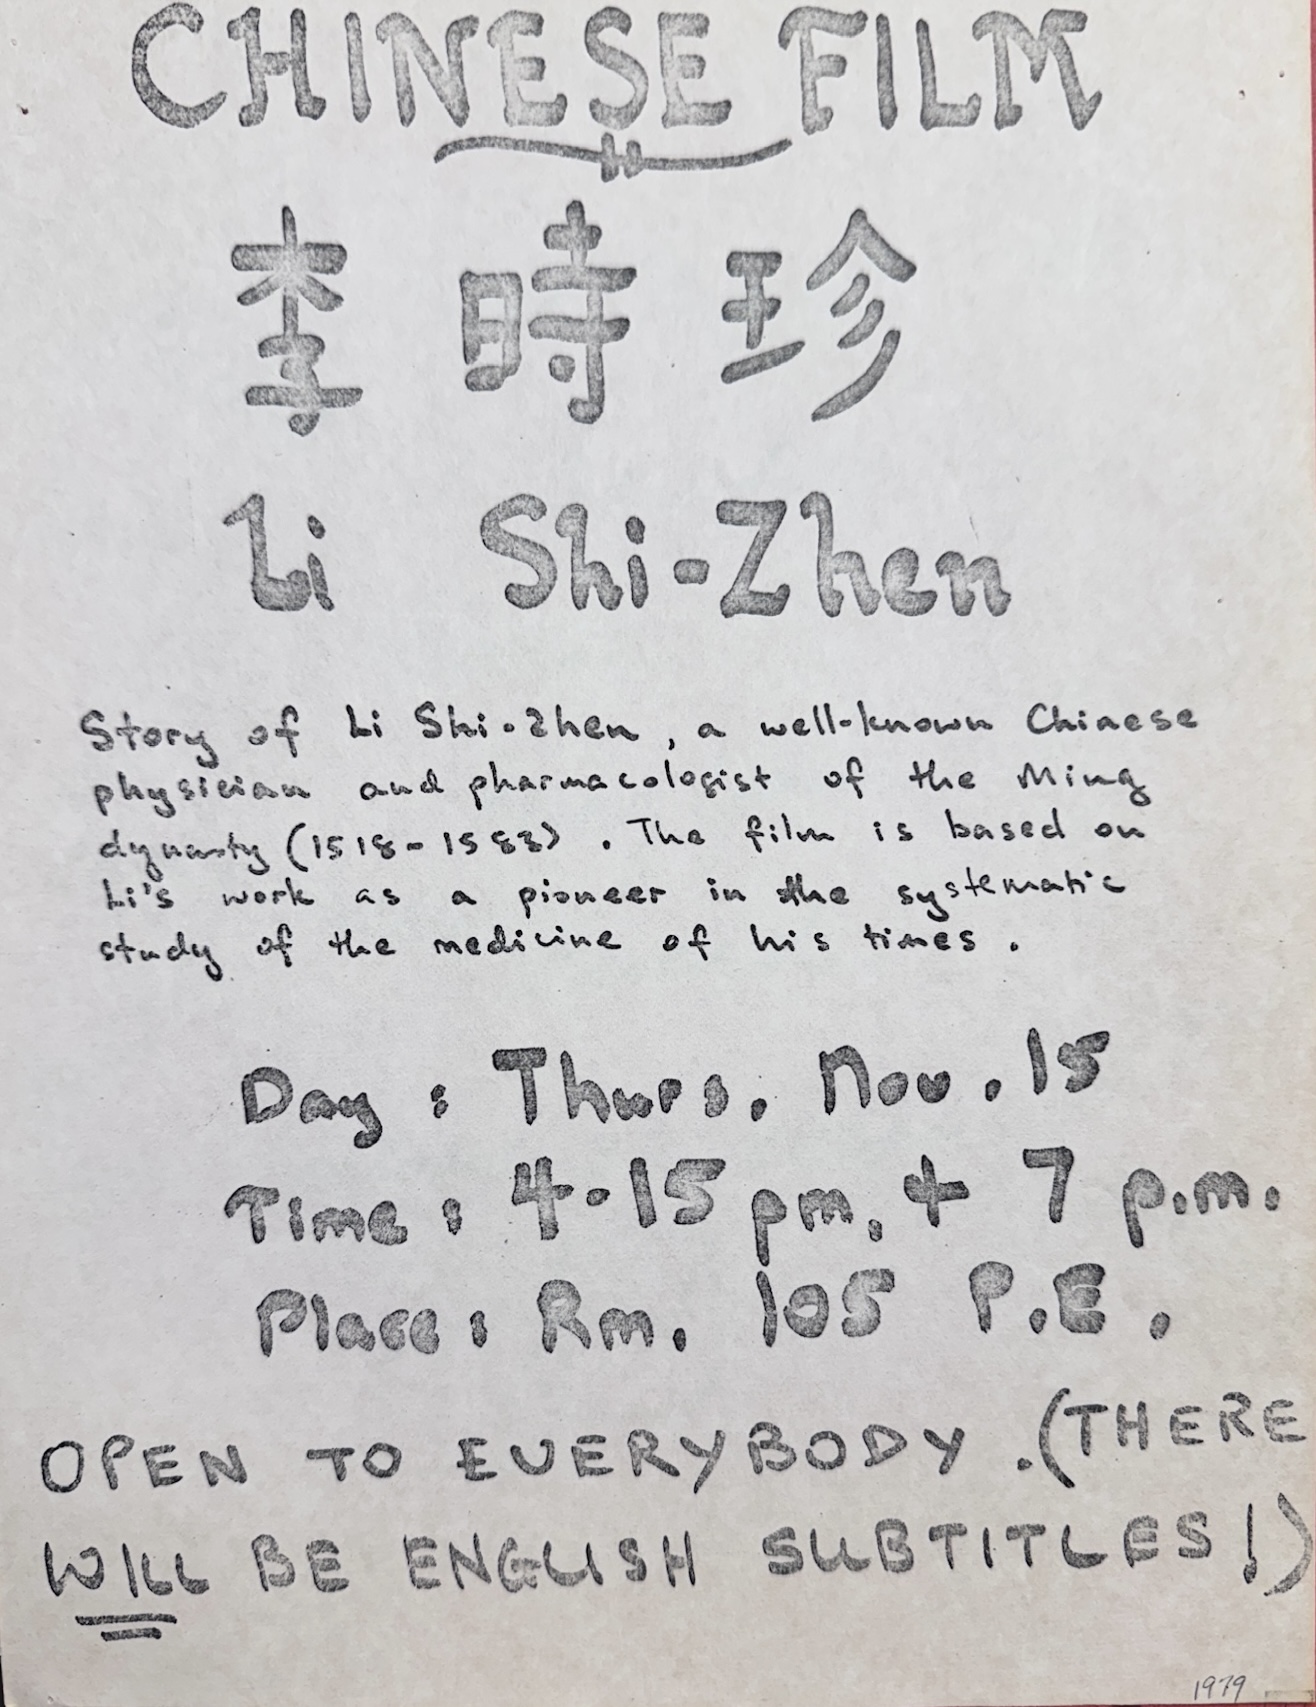 CHINESE FILM
李 時 珍
Li Shi-Zhen
Story of Li Shi-Zhen, a well-known Chinese
physician and pharmacologist of the Ming
dynasty (1518-1583). The film is based on
Li's work as a pioneer in the systematic
study of the medicine of his times.
Day: Thurs. Nov. 15
Time: 4.15 pm. + 7 p.m.
Place: Rm. 105 P.E.
OPEN TO EVERYBODY. (THERE
WILL BE ENGLISH SUBTITLES!)
1979